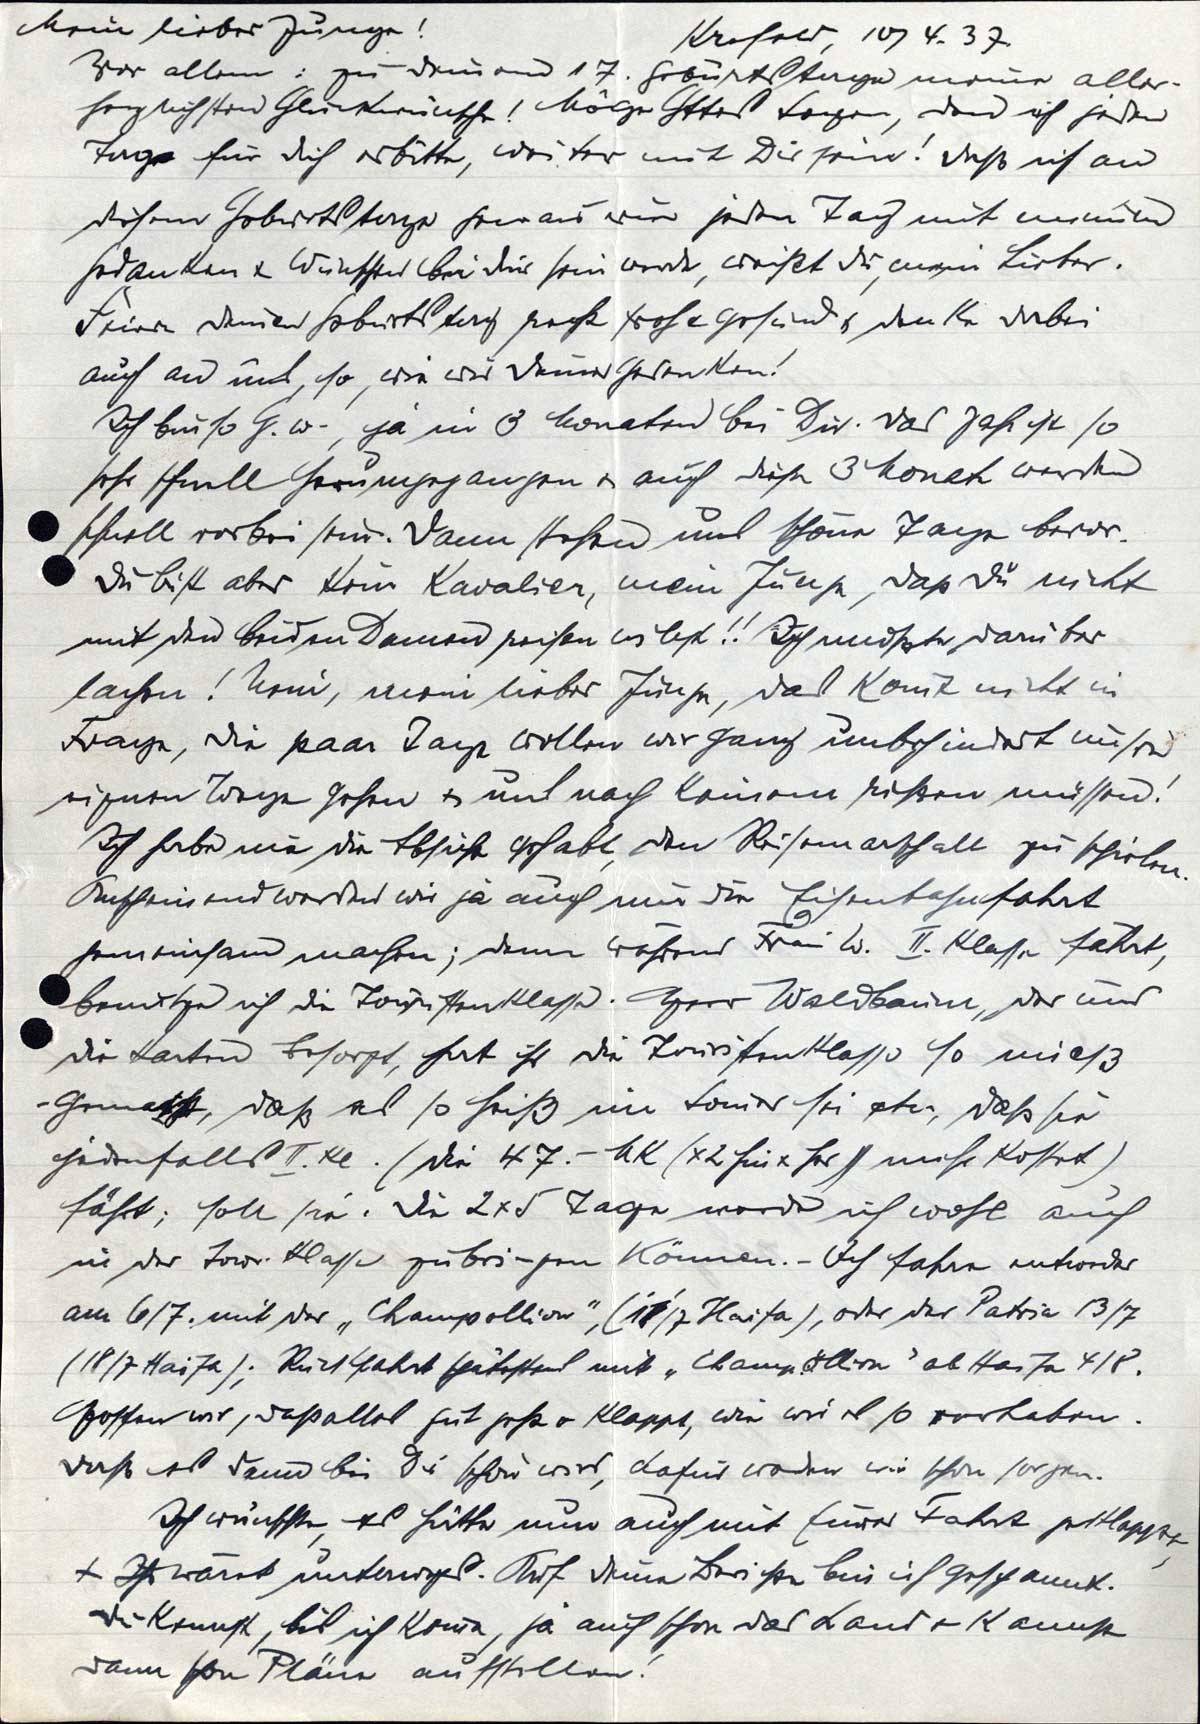 Mein lieber Junge!
Krefeld, 10/4.37.
Vor allem: zu Deinem 17. Geburtstage meine aller-
herzlichsten Glückwünsche! Möge Gottes Segen, den ich jeden
Tag für Dich erbitte, weiter mit Dir sein! Daß ich an
diesem Geburtstage genau wie jeden Tag mit meinen
Gedanken & Wünschen bei Dir sein werde, weißt Du, mein Lieber.
Feiere Deinen Geburtstag recht froh & gesund & denke dabei
auch an uns, so, wie wir Deiner gedenken!
Ich bin so G. w., ja in 3 Monaten bei Dir. Das Jahr ist so
sehr schnell herumgegangen & auch diese 3 Monate werden
schnell vorbei sein. Dann stehen uns schöne Tage bevor.
Du bist aber kein Kavalier, mein Junge, daß Du nicht
mit den beiden Damen reisen willst!! Ich mußte darüber
lachen! Nein, mein lieber Junge, das kommt nicht in
Frage, die paar Tage wollen wir ganz unbehindert unsere
eigenen Wege gehen & uns nach keinem richten müssen!
Ich habe nie die Absicht gehabt, den Reisemarschall zu spielen.
Anscheinend werden wir ja auch nur die Eisenbahnfahrt
gemeinsam machen; denn während Frau W. II. Klasse fährt,
benutze ich die Touristenklasse. Herr Waldbaum, der uns
die Karten besorgt, hat ihr die Touristenklasse so mieß
gemacht, daß es so heiß im Sommer sei etc., daß sie
jedenfalls II. Kl. (die 47.- Mk (x2 hin & her) mehr kostet)
fährt; soll sie. Die 2x5 Tage werde ich wohl auch
in der Tour. Klasse zubringen können. - Ich fahre entweder
am 6/7. mit der „Champollion", (11/7 Haifa), oder der Patria 13/7
(18/7 Haifa); Rückfahrt spätestens mit „Champollion" ab Haifa 4/8.
Hoffen wir, daß alles gut geht & klappt, wie wir es so vorhaben.
Daß es dann bei Dir schön wird, dafür werden wir schon sorgen.
Ich wünschte, es hätte nun auch mit Eurer Fahrt geklappt,
& Ihr wäret unterwegs. Auf Deine Berichte bin ich gespannt.
Du kennst, bis ich komme, ja auch schon das Land & kannst
dann schon Pläne aufstellen!